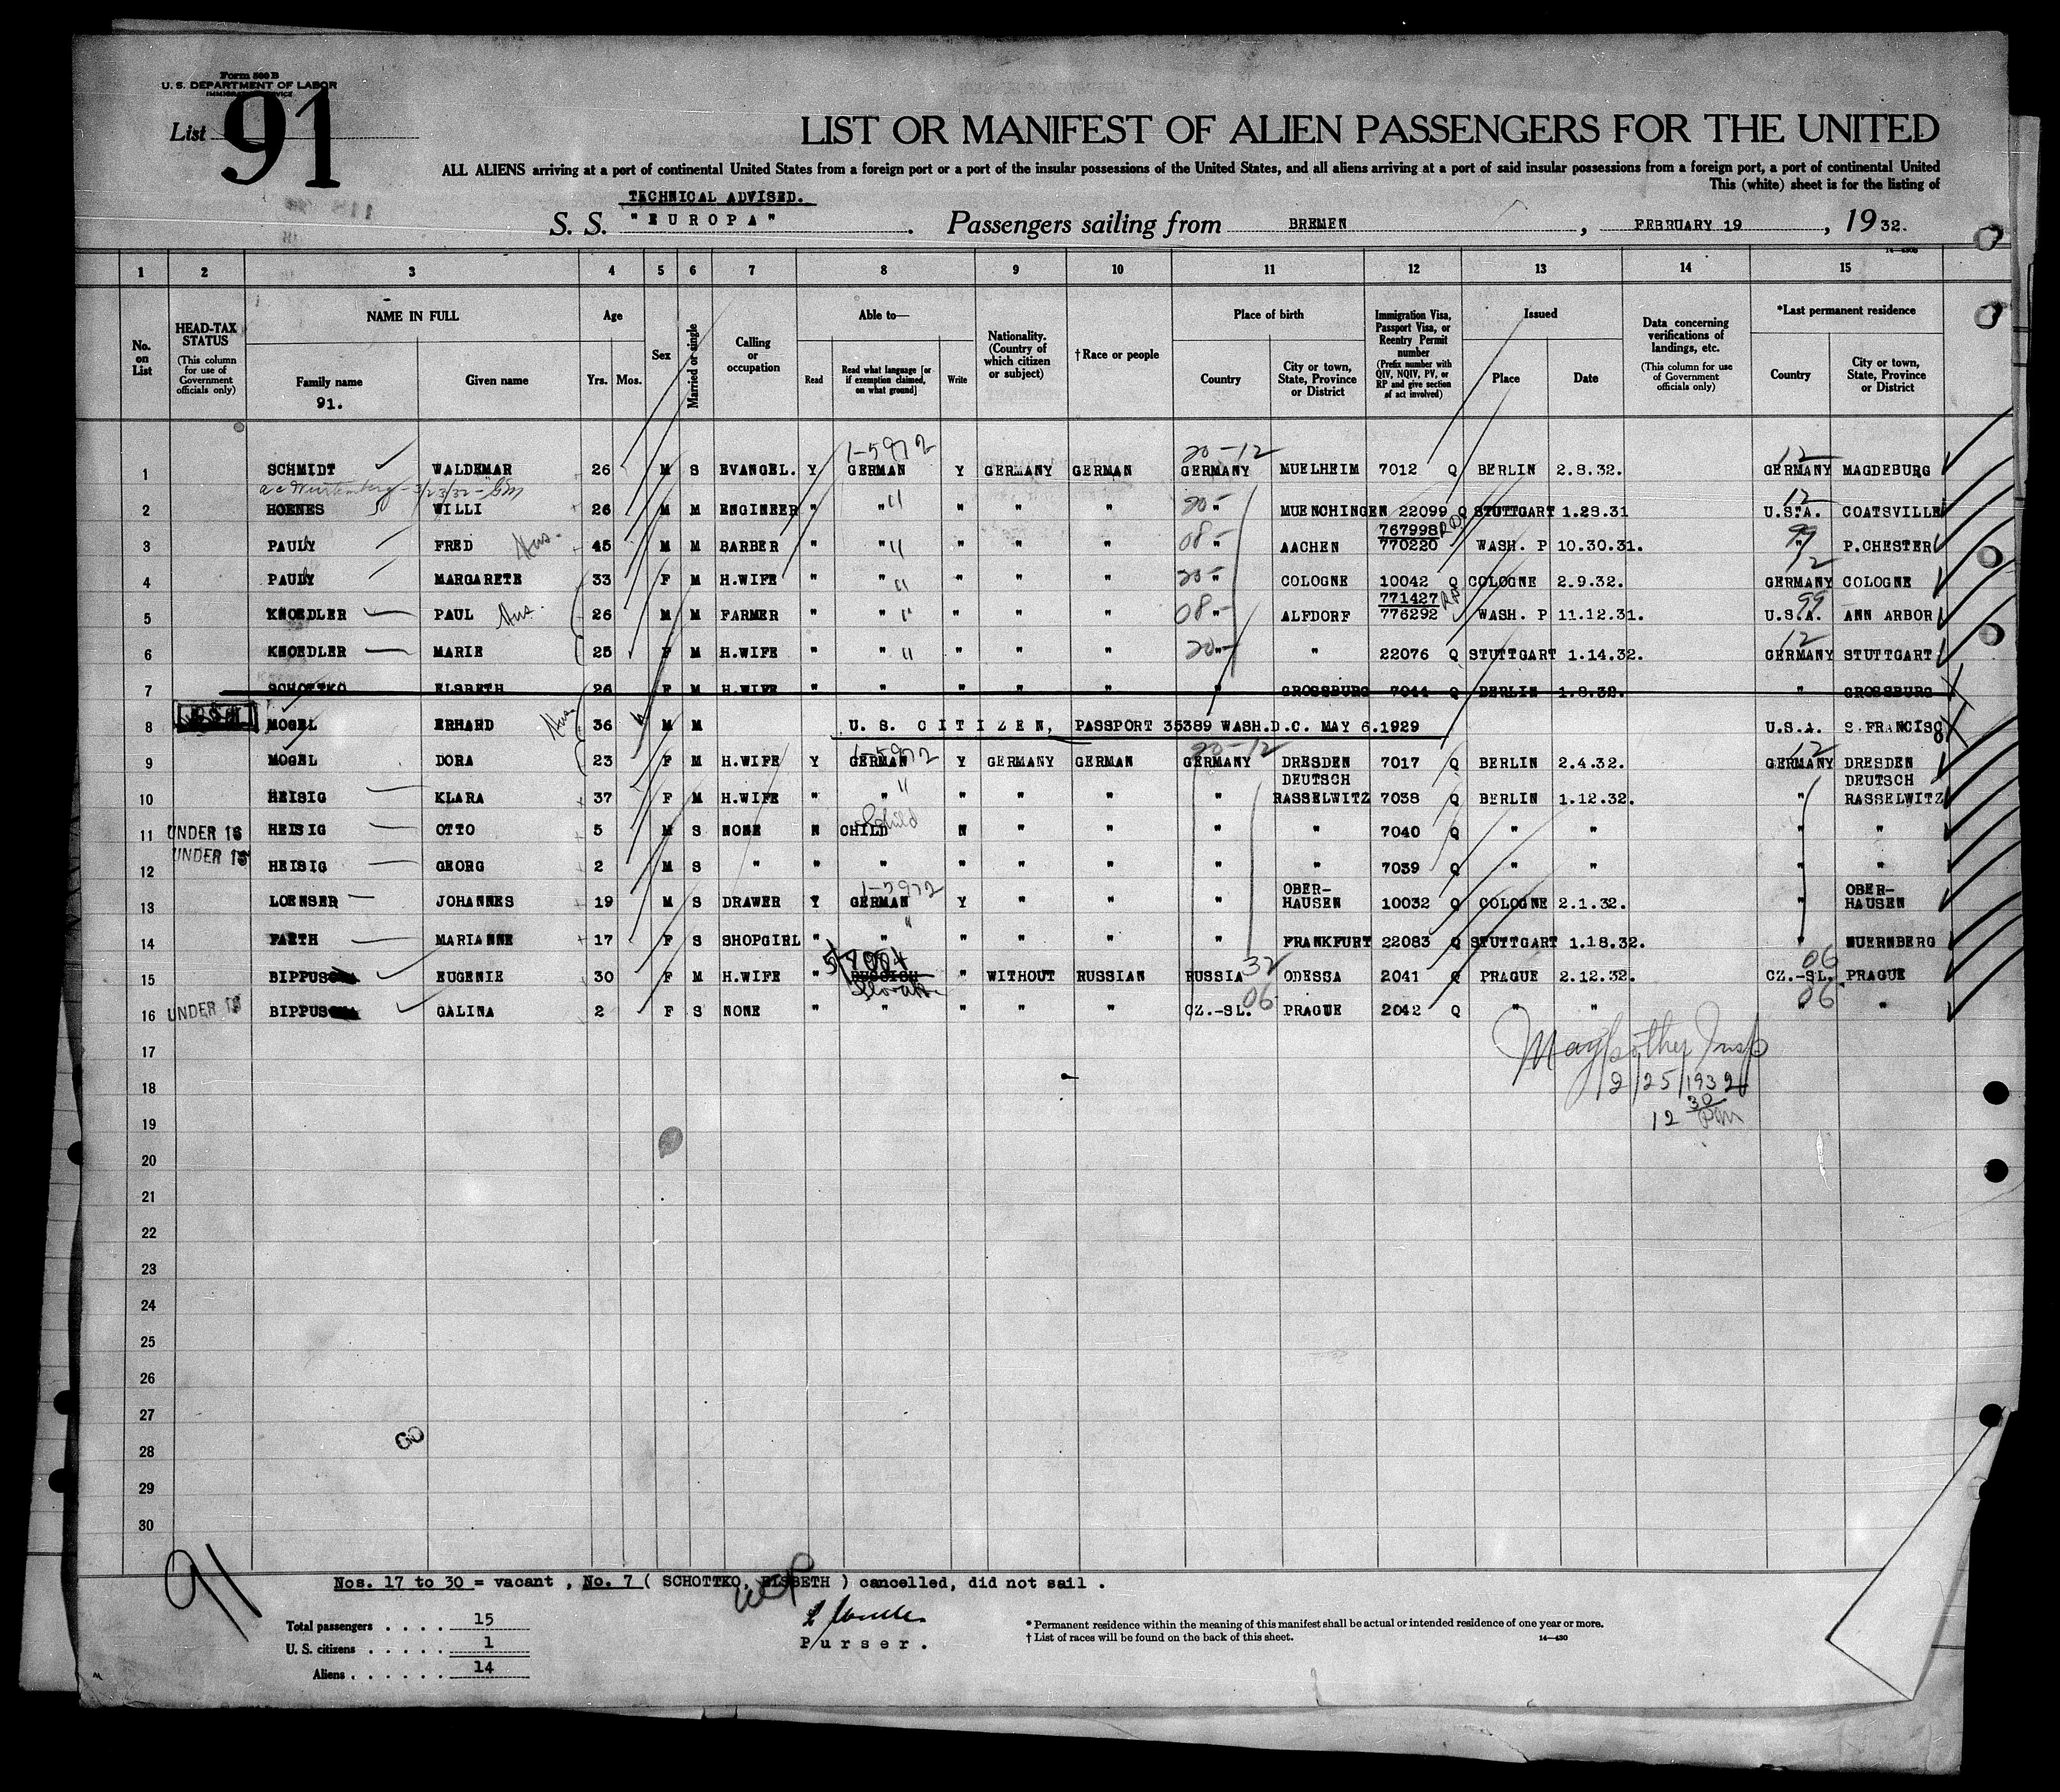 Form 500 B
U. S. DEPARTMENT OF LABOR
IMMIGRATION SERVICE
List 91
LIST OR MANIFEST OF ALIEN PASSENGERS FOR THE UNITED
ALL ALIENS arriving at a port of continental United States from a foreign port or a port of the insular possessions of the United States, and all aliens arriving at a port of said insular possessions from a foreign port, a port of continental United
This (white) sheet is for the listing of
TECHNICAL ADVISED.
S. S. "EUROPA". Passengers sailing from BREMEN, FEBRUARY 19, 1932.
1 2 3 4 5 6 7 8 9 10 11 12 13 14 15
No. on List
HEAD-TAX STATUS (This column for use of Government officials only)
NAME IN FULL
Family name
91.
Given name
Age
Yrs. Mos.
Sex
Married or single
Calling or occupation
Able to—
Read
Read what language [or if exemption claimed, on what ground]
Write
Nationality. (Country of which citizen or subject)
†Race or people
Place of birth
Country
City or town, State, Province or District
Immigration Visa, Passport Visa, or Reentry Permit number (Prefix number with QIV, NQIV, PV, or RP and give section of act involved)
Issued
Place
Date
Data concerning verifications of landings, etc. (This column for use of Government officials only)
*Last permanent residence
Country
City or town, State, Province or District
1-5972 20-12 12
1 SCHMIDT WALDEMAR 26 M S EVANGEL. Y GERMAN Y GERMANY GERMAN GERMANY MUELHEIM 7012 Q BERLIN 2.8.32. GERMANY MAGDEBURG
2 HOENES WILLI 26 M M ENGINEER " " " " " " MUENCHINGEN 22099 Q STUTTGART 1.28.31 U.S.A. COATSVILLE
3 PAULY FRED 45 M M BARBER " " " " " " AACHEN 767998 770220 WASH. P 10.30.31. " P.CHESTER
4 PAULY MARGARETE 33 F M H.WIFE " " " " " " COLOGNE 10042 Q COLOGNE 2.9.32. GERMANY COLOGNE
5 KNOEDLER PAUL 26 M M FARMER " " " " " " ALFDORF 771427 776292 WASH. P 11.12.31. U.S.A. ANN ARBOR
6 KNOEDLER MARIE 25 F M H.WIFE " " " " " " " 22076 Q STUTTGART 1.14.32. GERMANY STUTTGART
7 SCHOTTKO ELSBETH 26 F M H.WIFE " " " " " " GROSSBURG 7044 Q BERLIN 1.8.32. " GROSSBURG
8 MOGEL ERHARD 36 M M U. S. CITIZEN, PASSPORT 35389 WASH.D.C. MAY 6.1929 U.S.A. S.FRANCISCO
1-5972 20-12 12
9 MOGEL DORA 23 F M H.WIFE Y GERMAN Y GERMANY GERMAN GERMANY DRESDEN 7017 Q BERLIN 2.4.32. GERMANY DRESDEN
10 HEISIG KLARA 37 F M H.WIFE " " " " " " DEUTSCH RASSELWITZ 7038 Q BERLIN 1.12.32. " DEUTSCH RASSELWITZ
11 UNDER 16 HEISIG OTTO 5 M S NONE N CHILD N " " " " 7040 Q " " " "
12 UNDER 16 HEISIG GEORG 2 M S " " " " " " " " 7039 Q " " " "
13 LOENSER JOHANNES 19 M S DRAWER Y GERMAN Y " " " OBER-HAUSEN 10032 Q COLOGNE 2.1.32. " OBER-HAUSEN
14 FARTH MARIANNE 17 F S SHOPGIRL " " " " " " FRANKFURT 22083 Q STUTTGART 1.18.32. " NUERNBERG
15 BIPPUS EUGENIE 30 F M H.WIFE " " WITHOUT RUSSIAN RUSSIA 32 ODESSA 2041 Q PRAGUE 2.12.32. CZ.-SL. 06 PRAGUE
16 UNDER 16 BIPPUS GALINA 2 F S NONE " " " " " CZ.-SL. 06 PRAGUE 2042 Q " " " 06 "
17
2/25/1932
18
12 30 pm
19
20
21
22
23
24
25
26
27
28
29
30
91
Nos. 17 to 30 = vacant , No. 7 ( SCHOTTKO, ELSBETH ) cancelled, did not sail .
Total passengers . . . . 15
U. S. citizens . . . . . 1
Aliens . . . . . . 14
Purser.
* Permanent residence within the meaning of this manifest shall be actual or intended residence of one year or more.
† List of races will be found on the back of this sheet.
14—430